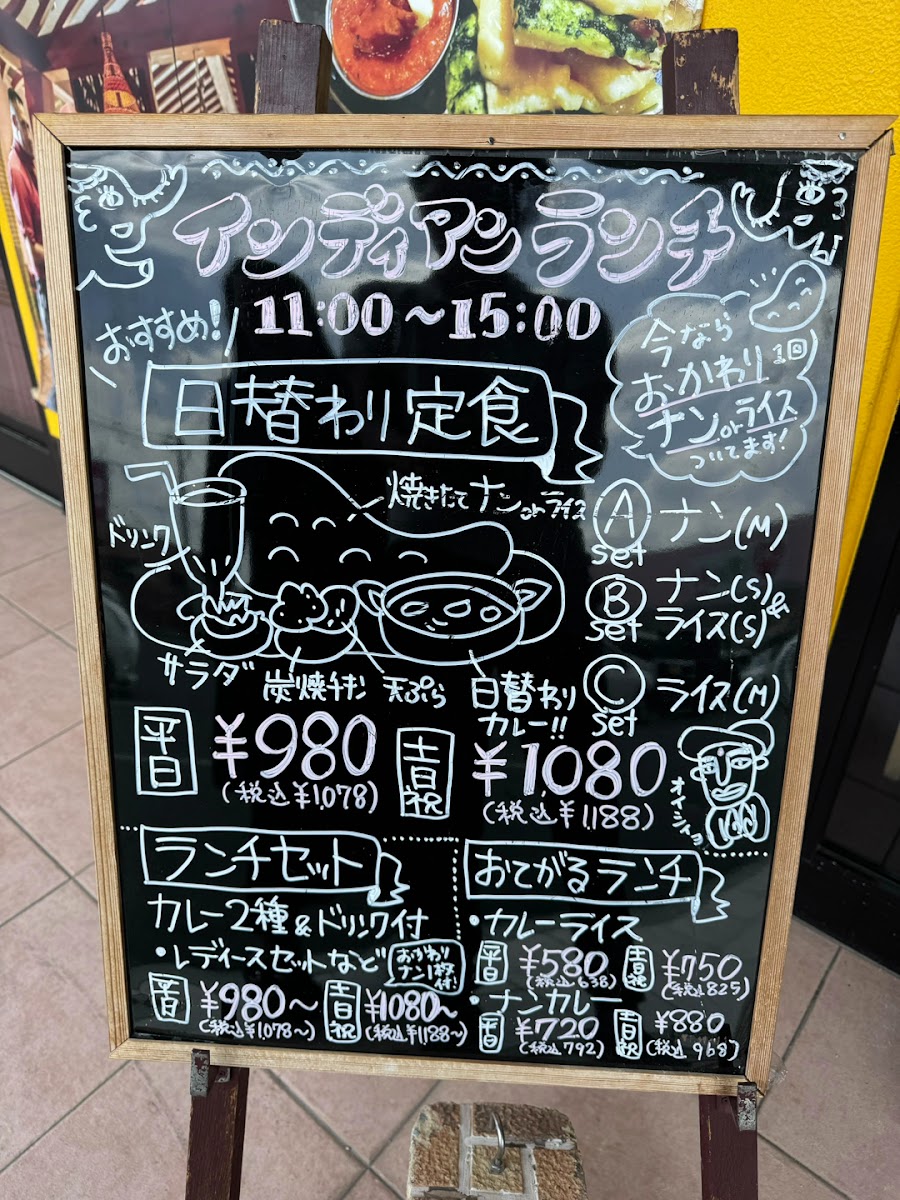 インディアンランチ
11:00〜15:00
おすすめ!
日替わり定食
今なら
おかわり1回
ナンorライス
ついてます!
焼きたてナンorライス
ドリンク
サラダ
炭焼チキン
天ぷら
日替わり
カレー!!
A set ナン(M)
B set ナン(S)&
ライス(S)
C set ライス(M)
平日 ¥980
(税込¥1,078)
土日祝 ¥1,080
(税込¥1,188)
オイシイヨ
ランチセット
カレー2種&ドリンク付
・レディースセットなど
おかわり
ナン1枚
付!
平日 ¥980〜
(税込¥1,078〜)
土日祝 ¥1,080〜
(税込¥1,188〜)
おてがるランチ
・カレーライス
平日 ¥580
(税込638)
土日祝 ¥750
(税込825)
・ナンカレー
平日 ¥720
(税込792)
土日祝 ¥880
(税込968)